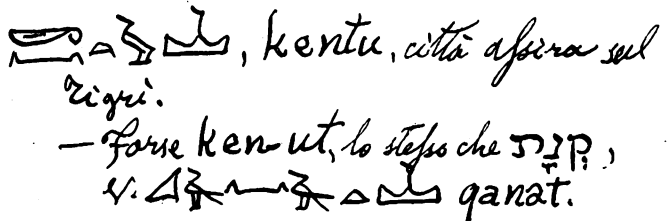 𓎡𓈖𓏏𓅱𓈉, kentu, città aſsira sul
Tigri.
— Forse ken-ut, lo steſso che קְנָת,
v. 𓈎𓄿𓈖𓄿𓏏𓈉 qanat.